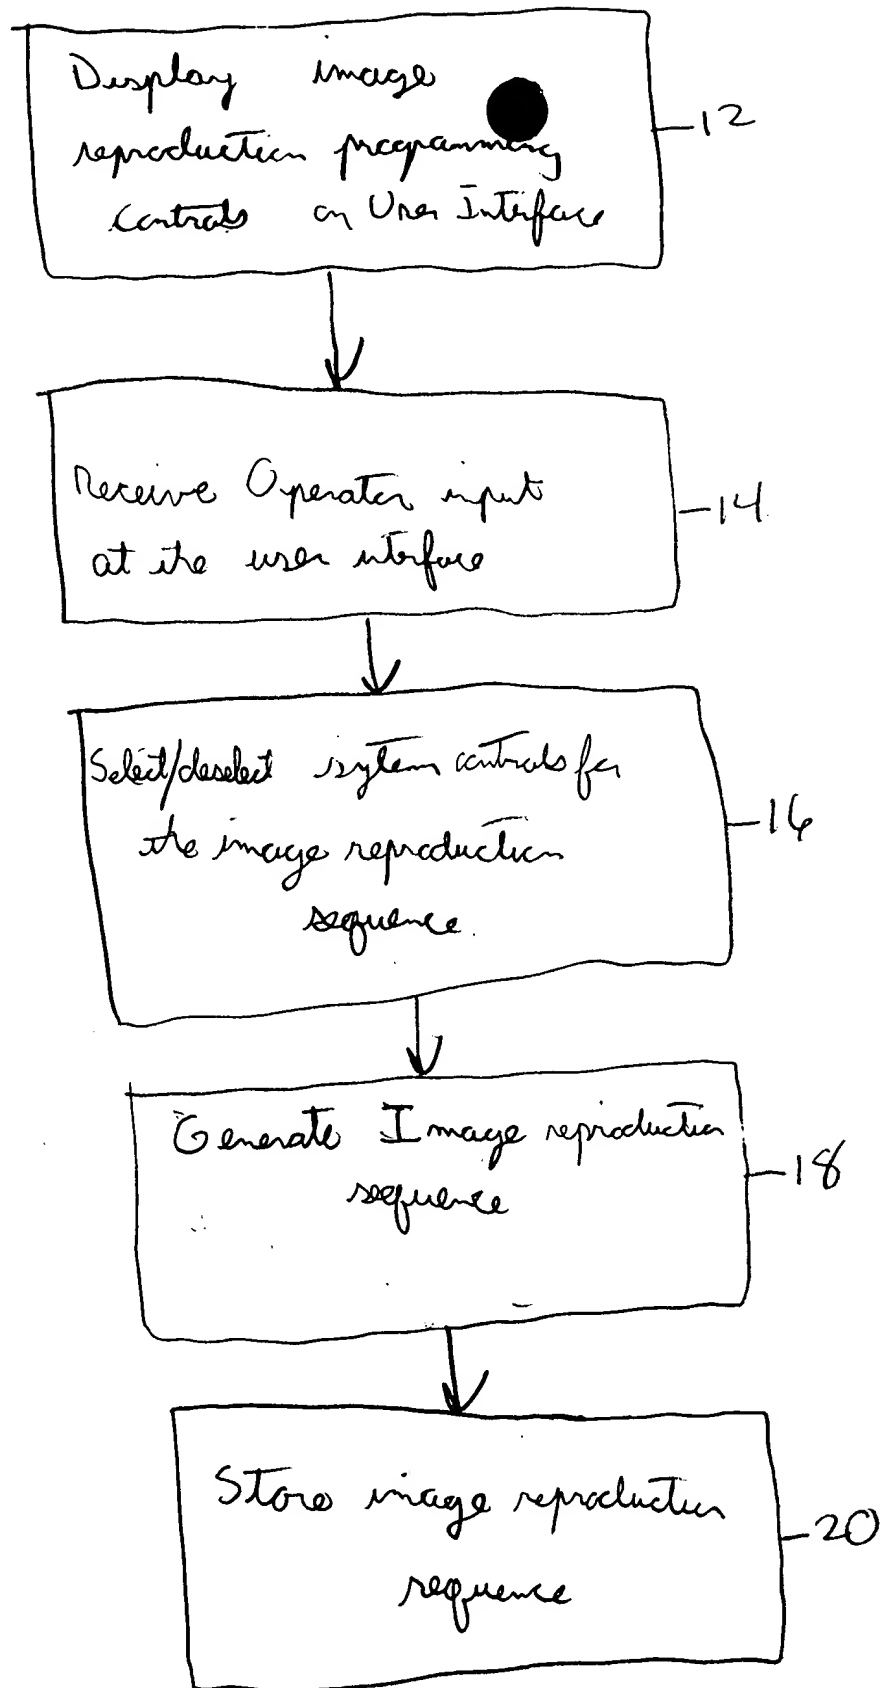 Display image
reproduction programming
controls on User Interface
12
Receive Operator input
at the user interface
14
Select/deselect system controls for
the image reproduction
sequence.
16
Generate Image reproduction
sequence
18
Store image reproduction
sequence
20